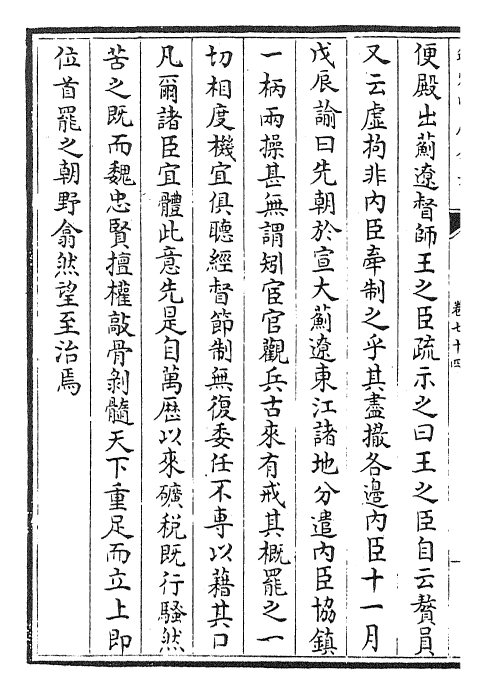 便殿出薊遼督師王之臣疏示之曰王之臣自云贅員
又云虛拘非內臣牽制之乎其盡撤各邊內臣十一月
戊辰諭曰先朝於宣大薊遼東江諸地分遣內臣協鎮
一柄兩操甚無謂矧宦官觀兵古來有戒其概罷之一
切相度機宜俱聽經督節制無復委任不專以藉其口
凡爾諸臣宜體此意先是自萬厯以來礦稅既行騷然
苦之既而魏忠賢擅權敲骨剝髓天下重足而立上即
位首罷之朝野翕然望至治焉
卷七十四